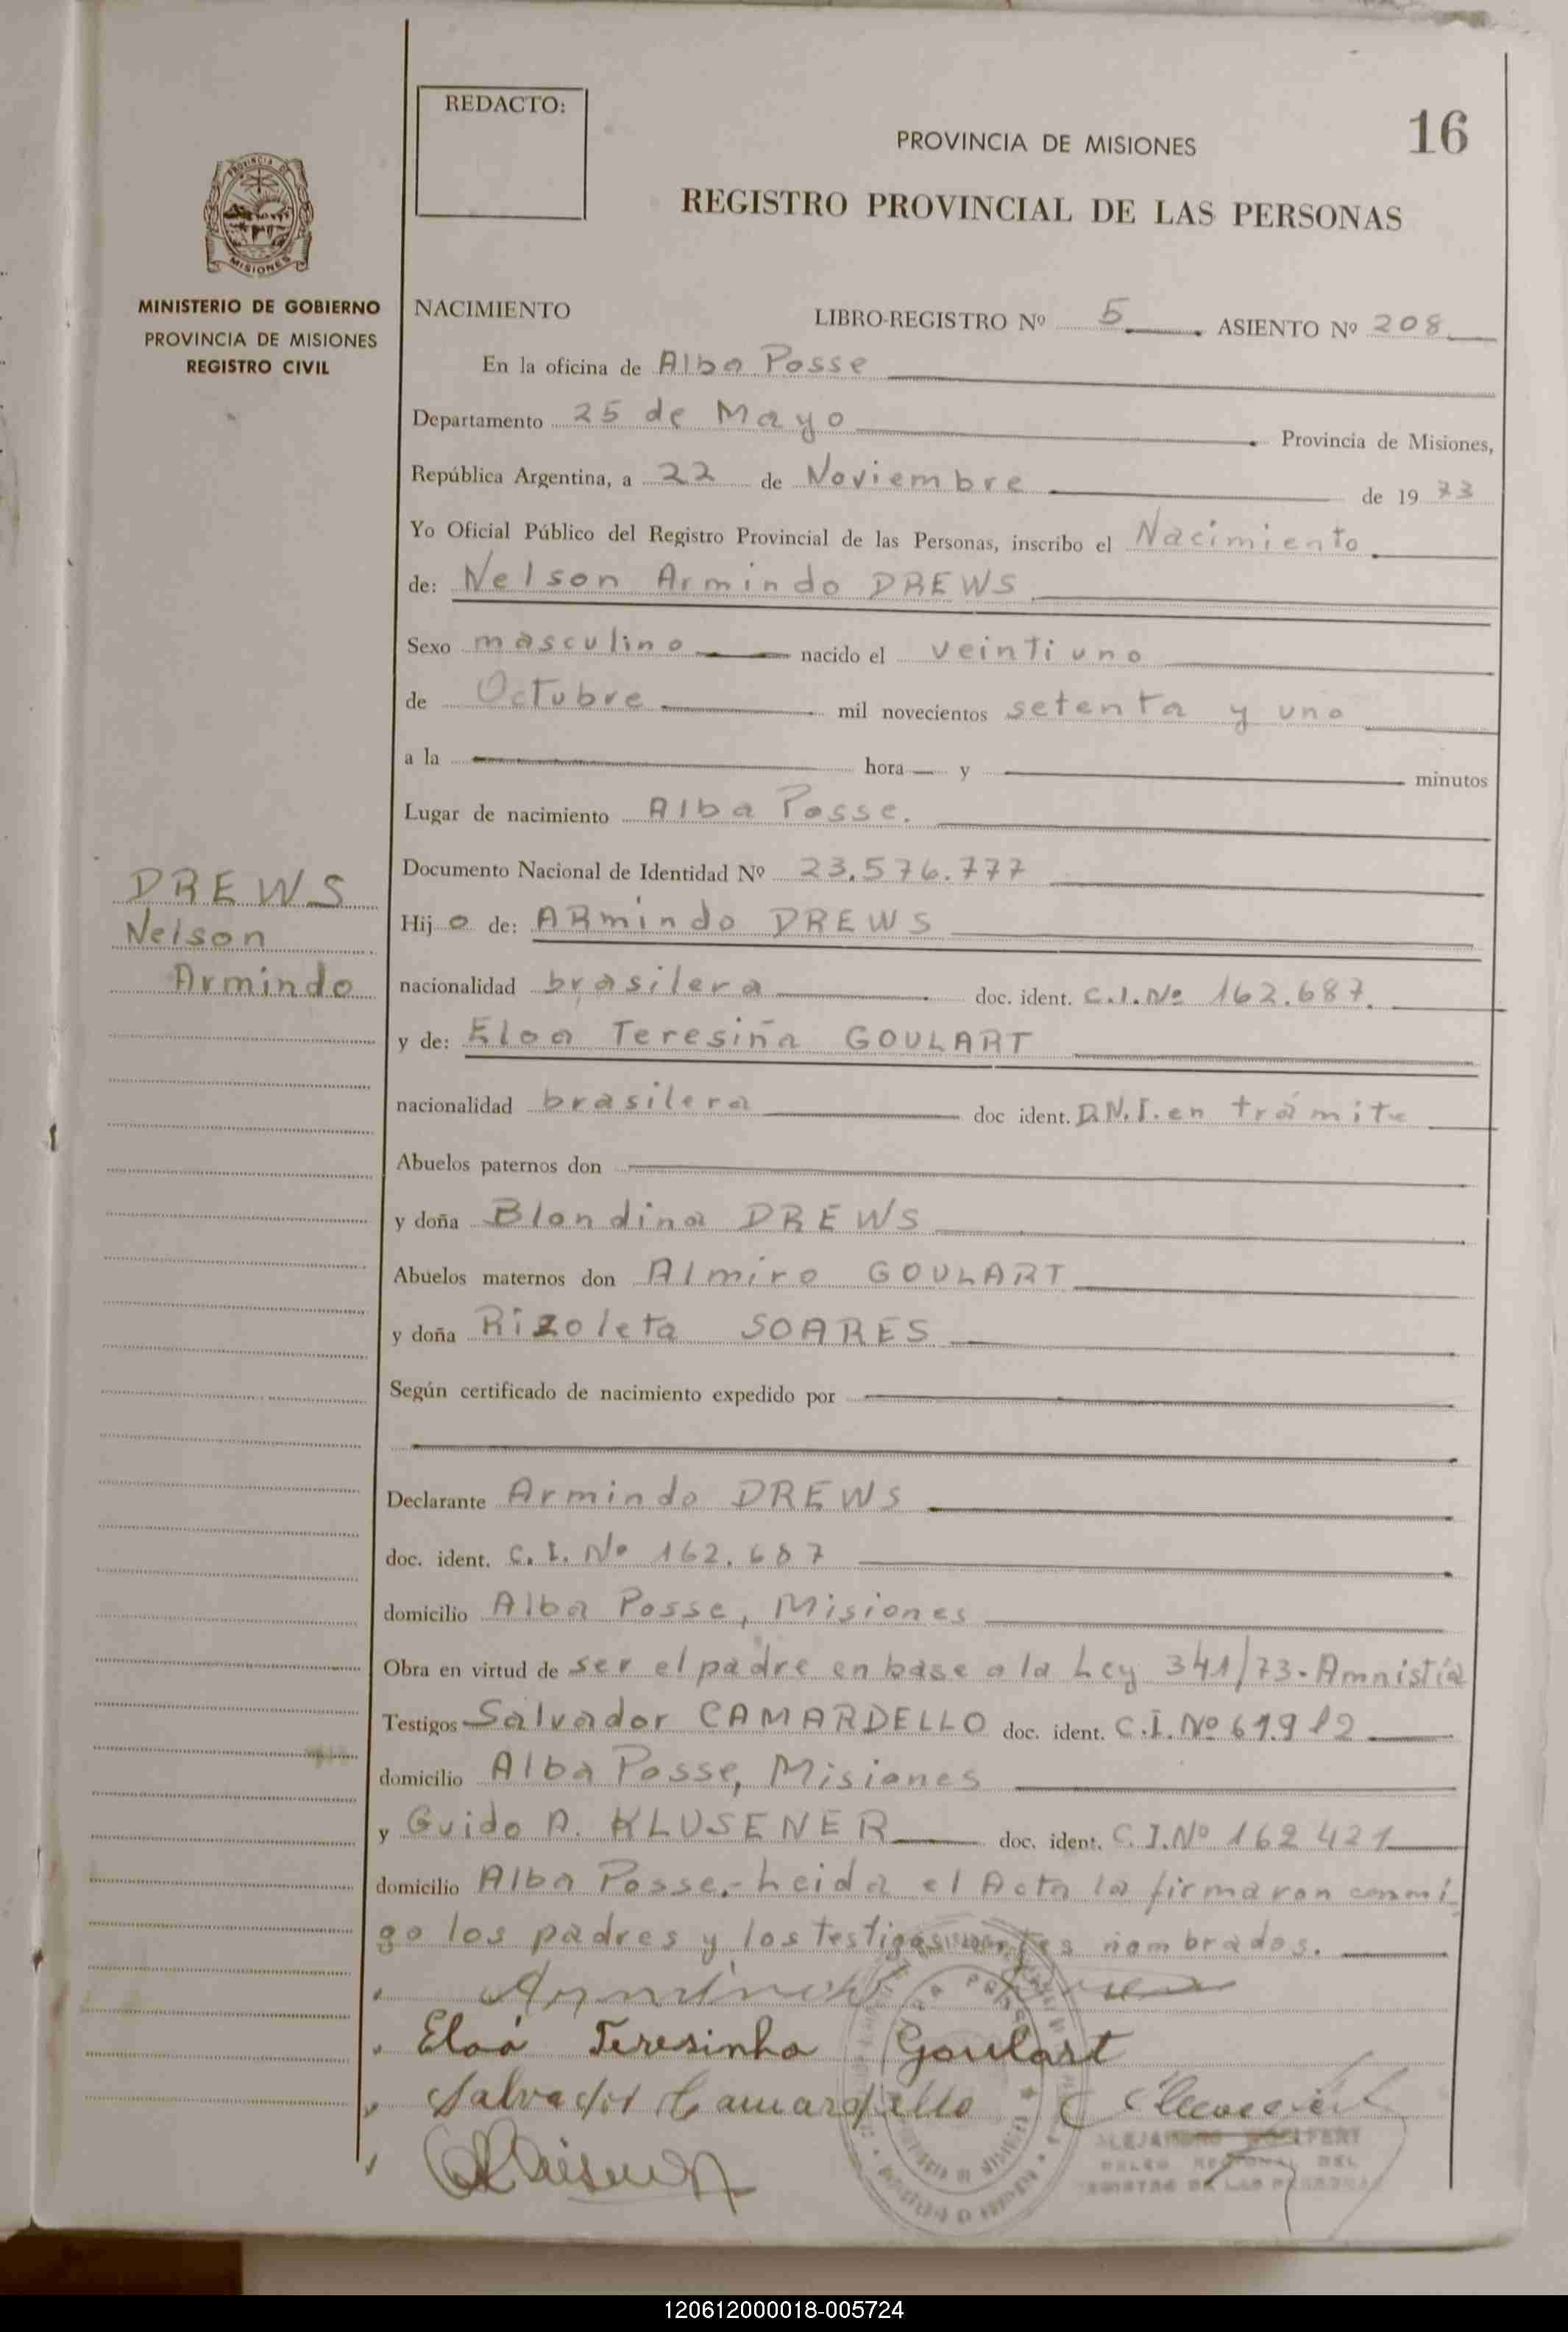 REDACTO:
16
PROVINCIA DE MISIONES
REGISTRO PROVINCIAL DE LAS PERSONAS
PROVINCIA DE
MISIONES
MINISTERIO DE GOBIERNO
PROVINCIA DE MISIONES
REGISTRO CIVIL
NACIMIENTO LIBRO-REGISTRO Nº 5 ASIENTO Nº 208
En la oficina de Alba Posse
Departamento 25 de Mayo Provincia de Misiones,
República Argentina, a 22 de Noviembre de 1973
Yo Oficial Público del Registro Provincial de las Personas, inscribo el Nacimiento
de: Nelson Armindo DREWS
Sexo masculino nacido el veintiuno
de Octubre mil novecientos setenta y uno
a la hora y minutos
Lugar de nacimiento Alba Posse.
Documento Nacional de Identidad Nº 23.576.777
DREWS
Nelson
Armindo
Hijo de: ARmindo DREWS
nacionalidad brasilera doc. ident. C.I.Nº 162.687.
y de: Eloa Teresiña GOULART
nacionalidad brasilera doc ident. D.N.I. en trámite
Abuelos paternos don
y doña Blondina DREWS
Abuelos maternos don Almiro GOULART
y doña Rizoleta SOARES
Según certificado de nacimiento expedido por
Declarante Armindo DREWS
doc. ident. C.I. Nº 162.687
domicilio Alba Posse, Misiones
Obra en virtud de ser el padre en base a la Ley 341/73-Amnistía
Testigos Salvador CAMARDELLO doc. ident. C.I.Nº
domicilio Alba Posse, Misiones
y Guido A. KLUSENER doc. ident. C.I.Nº 162421
domicilio Alba Posse.- Leida el Acta la firmaron conmi
go los padres y los testigos nombrados.
Armindo Drews
Eloá Teresinha Goulart
Salvador Camardello
120612000018-005724